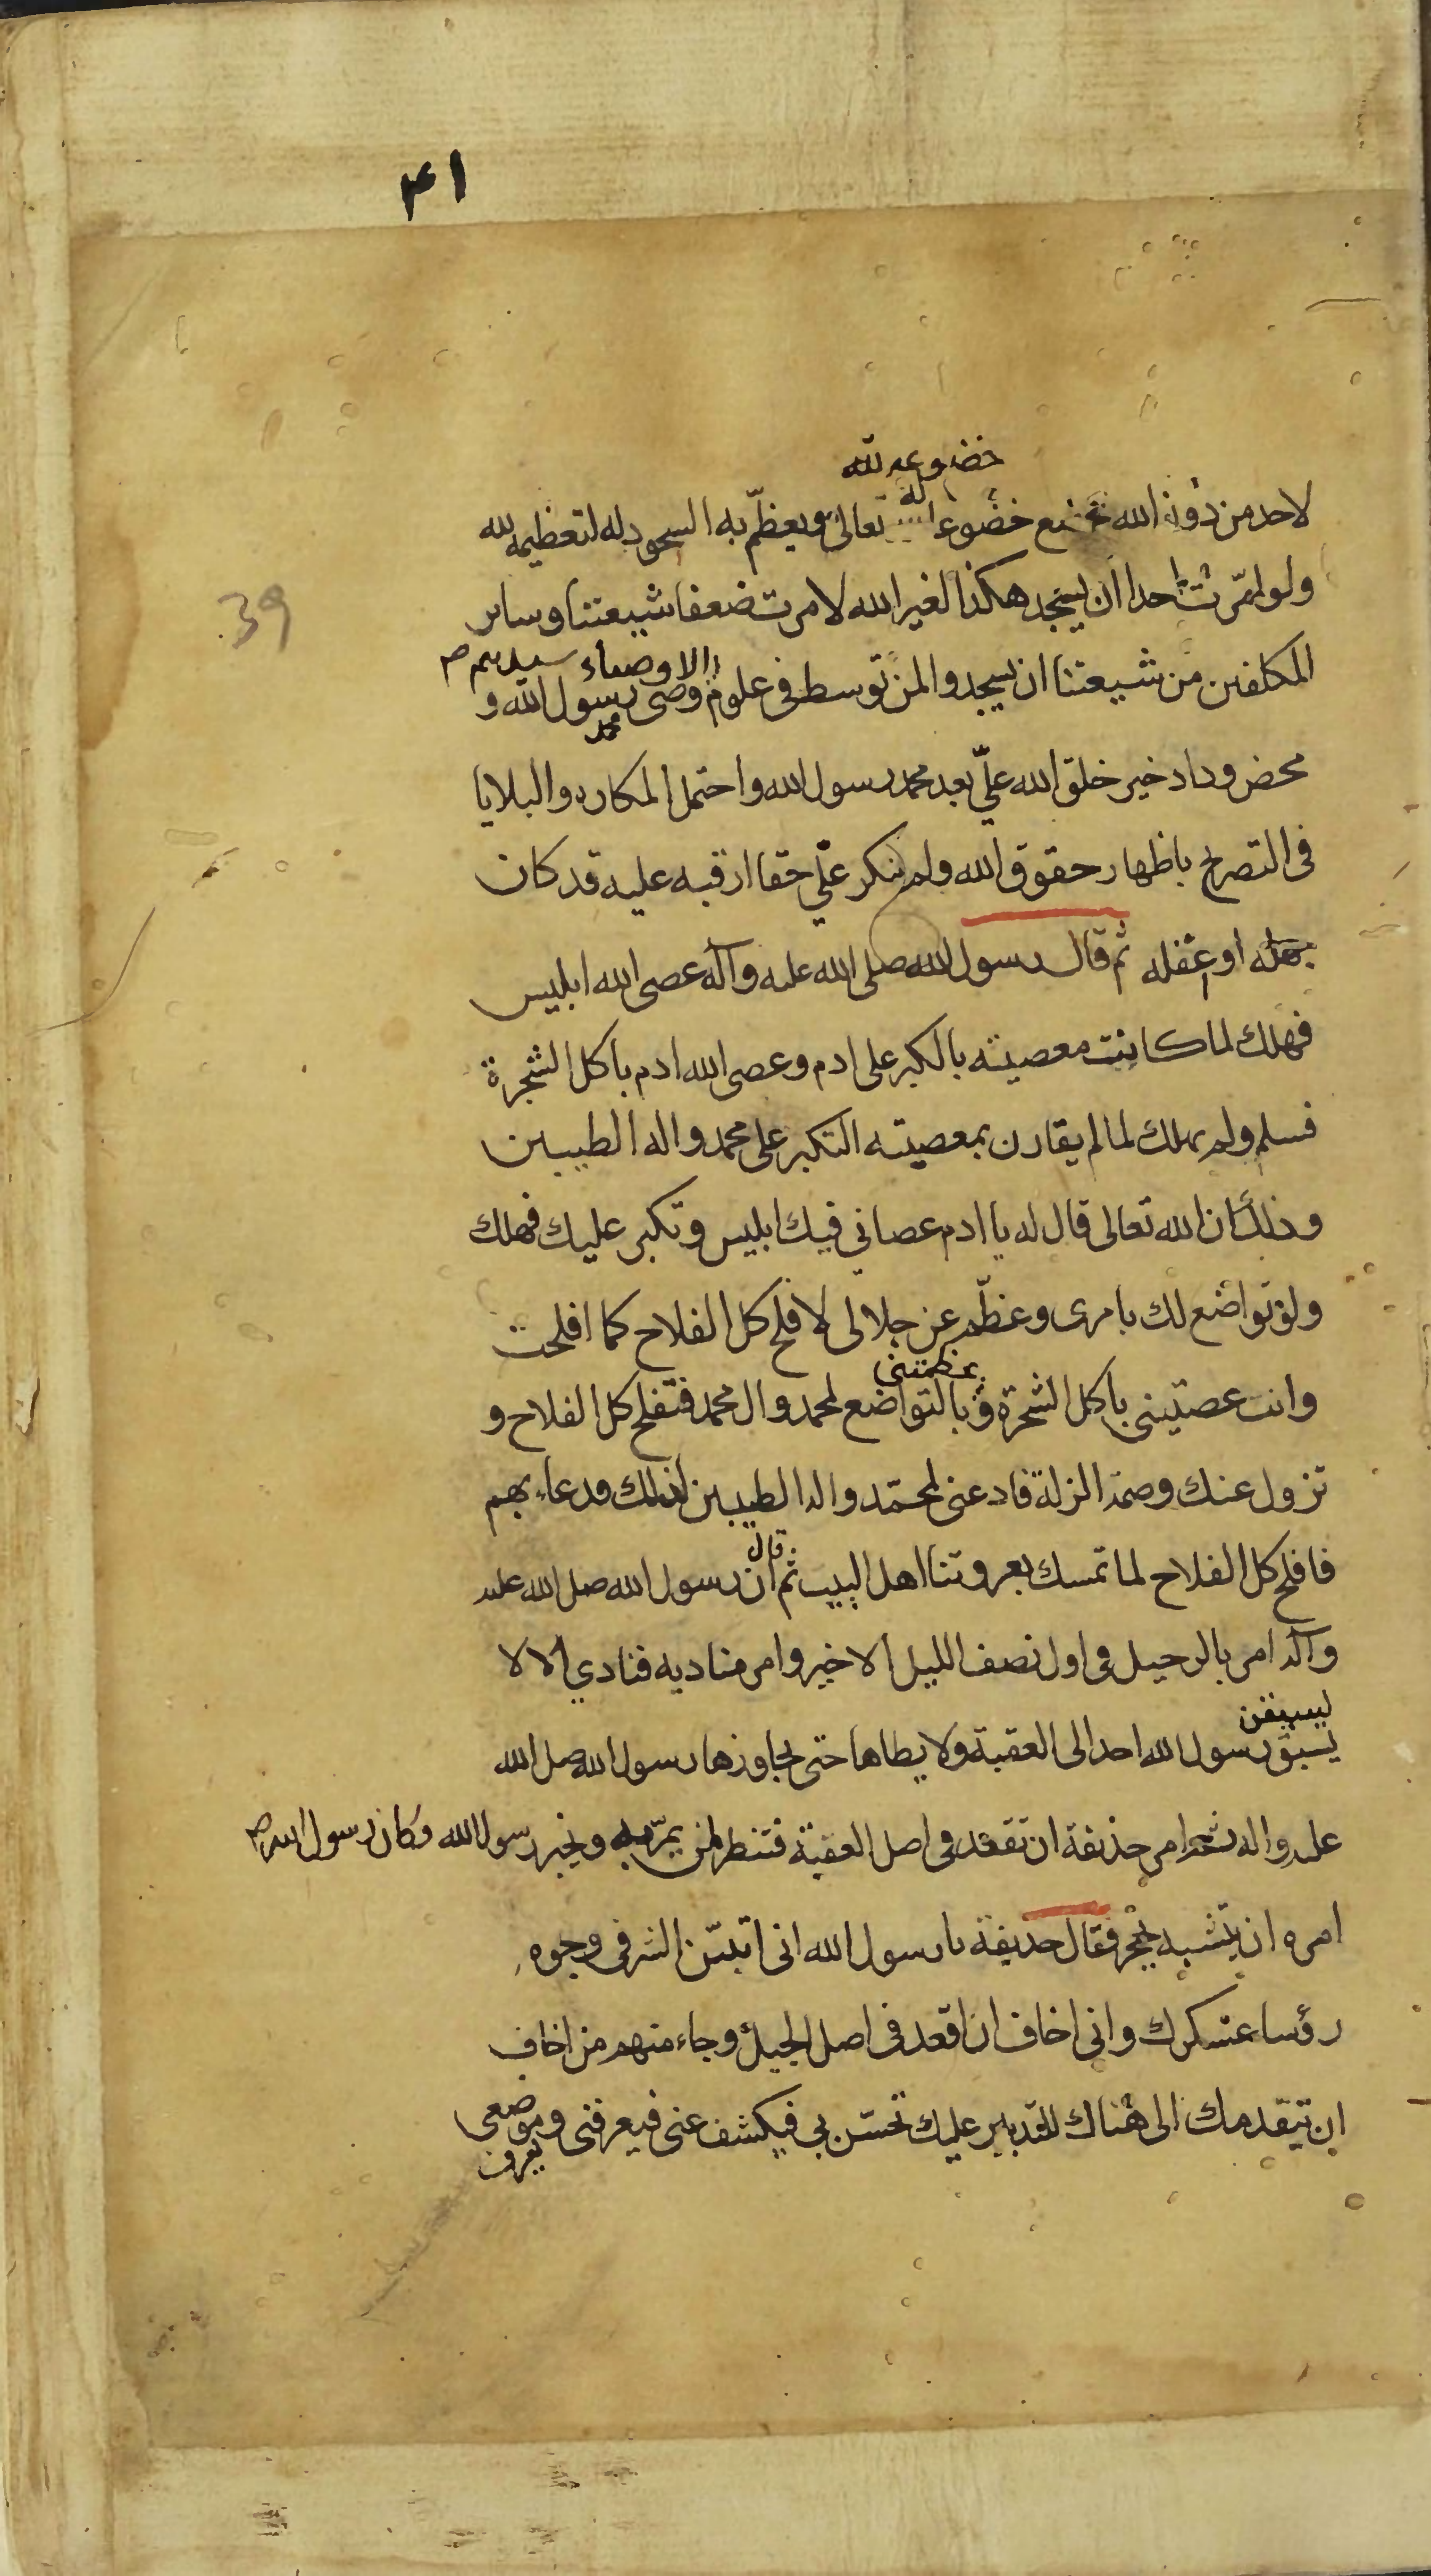 ٤١
خضوعه لله
لاحد من دون الله يخضع خضوعا له تعالى ويعظم به السجود له لتعظيمه لله
ولو امرت احدا ان يسجد هكذا لغير الله لامرت ضعفا شيعتنا وساير
الاوصياء سيدهم
المكلفين من شيعتنا ان يسجدوا لمن توسط في علوم وصى رسول الله و
محمد
محض وداد خير خلق الله علىّ بعد محمد رسول الله واحتمل المكاره والبلايا
39
فى التصريح باظهار حقوق الله ولم ينكر علىّ حقا ارقبه عليه قد كان
جهله او غفله ثم قال رسول الله صلى الله عليه وآله عصى الله ابليس
فهلك لما كانت معصيته بالكبر على ادم وعصى الله ادم باكل الشجرة
فسلم ولم يهلك لما لم يقارن بمعصيته التكبر على محمد واله الطيبين
وذلك ان الله تعالى قال له يا ادم عصانى فيك ابليس وتكبر عليك فهلك
ولو تواضع لك بامرى وعظّم عز جلالى لافلح كل الفلاح كما افلحت
يعظمتنى
وانت عصيتنى باكل الشجرة و بالتواضع لمحمد وال محمد فتفلح كل الفلاح و
تزول عنك وصمة الزلة فادعنى لمحمّد واله الطيبين لذلك فدعاء بهم
فافلح كل الفلاح لما تمسك بعروتنا اهل البيت ثم قال ان رسول الله صلى الله عليه
وآله امر بالرحيل فى اول نصف الليل الاخير وامر مناديه فنادي الا لا
ليسبقن
يسبق رسول الله احد الى العقبة ولا يطاها حتى يجاوزها رسول الله صلى الله
عليه واله ثم امر حذيفة ان تقعد فى اصل العقبة فتنظر لمن يمرّ به ويخبر رسول الله وكان رسول الله ص
امره ان يتشبه بحجر فقال حذيفة يا رسول الله انى اتبيّن الشر فى وجوه
رؤسا عسكرك وانى اخاف ان اقعد فى اصل الجبل وجاء منهم من اخاف
ان يتقدمك الى هناك للتدبير عليك تحسّن بى فيكشف عنى فيعرفنى وموضعى
يعرف